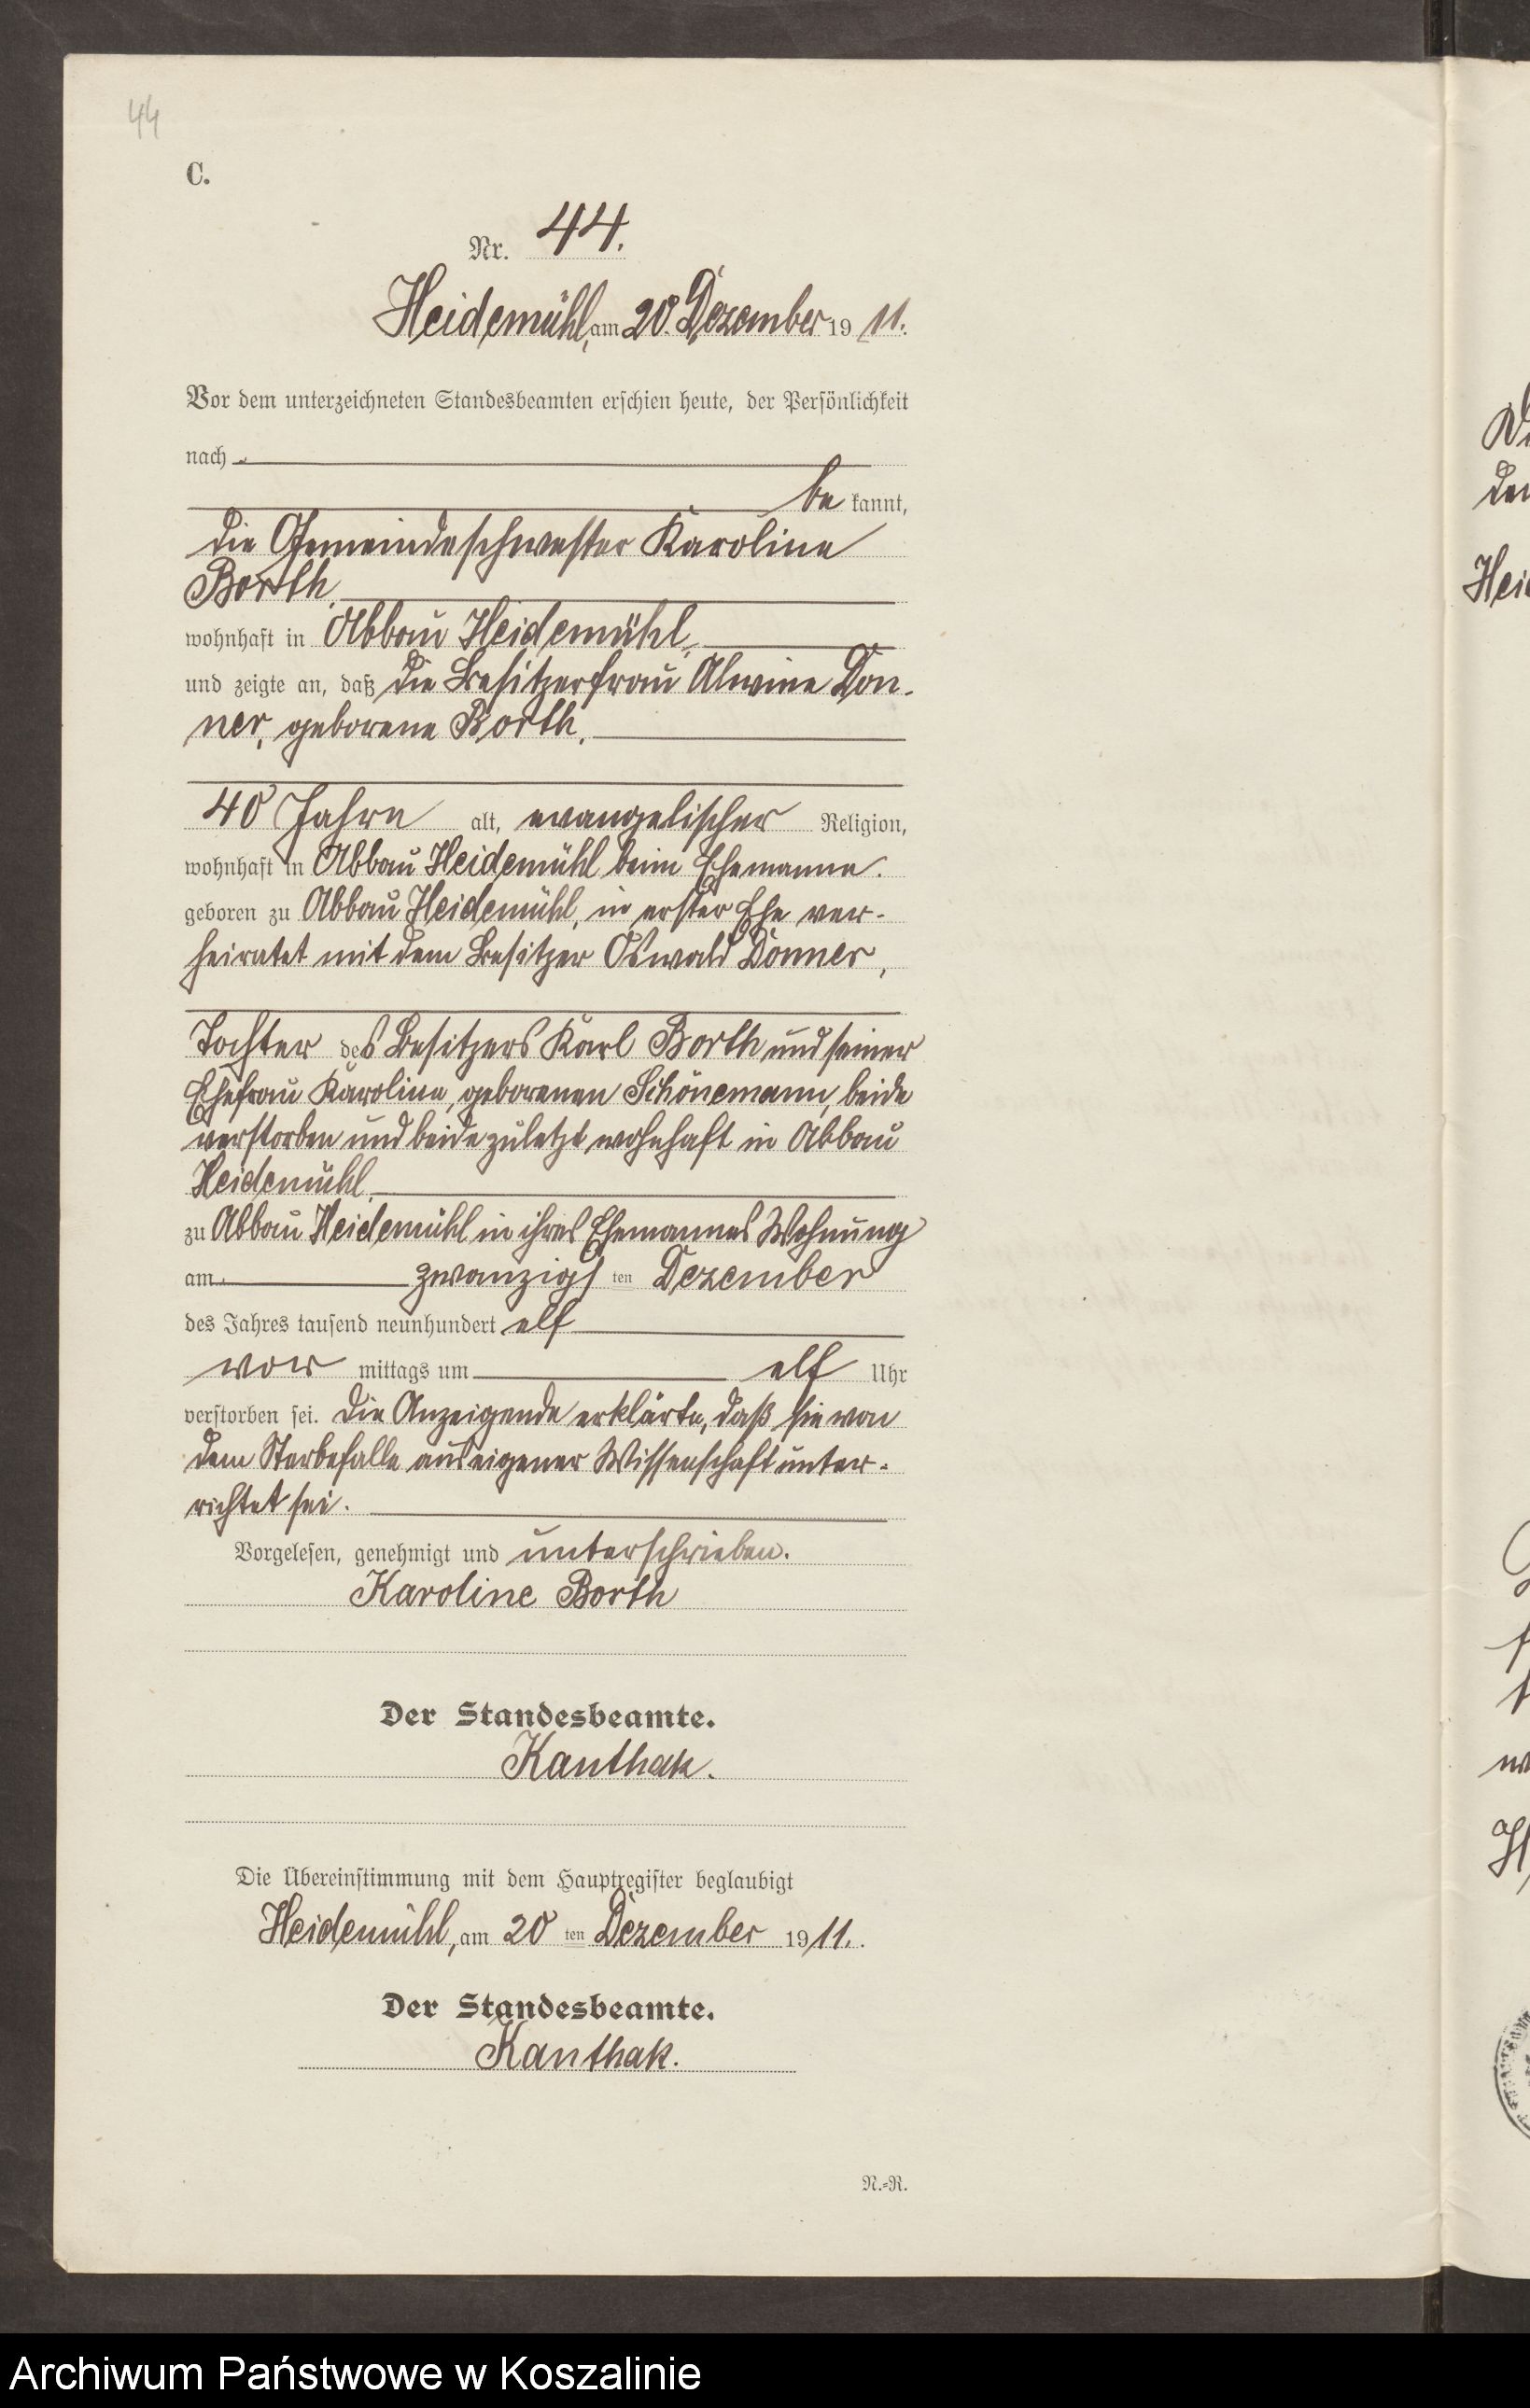 44
C.
Nr. 44.
Heidemühl, am 20. Dezember 1911.
Vor dem unterzeichneten Standesbeamten erschien heute, der Persönlichkeit
nach
be kannt,
die Gemeindeschwester Karoline
Borth,
wohnhaft in Abbau Heidemühl,
und zeigte an, daß die Besitzerfrau Alwine Don-
ner, geborene Borth,
40 Jahre alt, evangelischer Religion,
wohnhaft in Abbau Heidemühl beim Ehemanne.
geboren zu Abbau Heidemühl, in erster Ehe ver-
heiratet mit dem Besitzer Oswald Donner,
Tochter des Besitzers Karl Borth und seiner
Ehefrau Karoline, geborenen Schönemann, beide
verstorben und beide zuletzt wohnhaft in Abbau
Heidemühl,
zu Abbau Heidemühl in ihres Ehemannes Wohnung
am zwanzigs ten Dezember
des Jahres tausend neunhundert elf
vor mittags um elf Uhr
verstorben sei. Die Anzeigende erklärte, daß sie von
dem Sterbefalle aus eigener Wissenschaft unter-
richtet sei.
Vorgelesen, genehmigt und unterschrieben.
Karoline Borth
Der Standesbeamte.
Kanthak.
Die Übereinstimmung mit dem Hauptregister beglaubigt
Heidemühl, am 20 ten Dezember 1911.
Der Standesbeamte.
Kanthak.
N.-R.
Archiwum Państwowe w Koszalinie